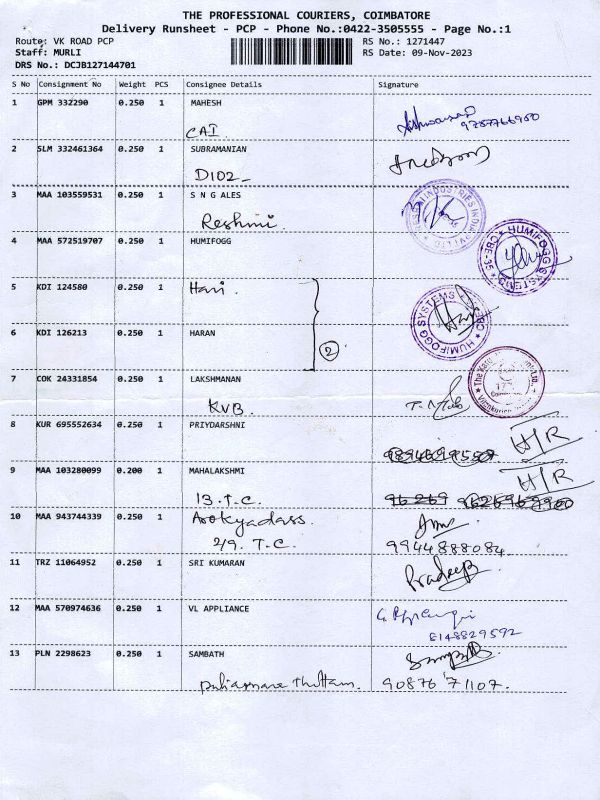 THE PROFESSIONAL COURIERS, COIMBATORE
Delivery Runsheet - PCP - Phone No.:0422-3505555 - Page No.:1
Route: VK ROAD PCP
RS No.: 1271447
Staff: MURLI
RS Date: 09-Nov-2023
DRS No.: DCJB127144701
S No Consignment No Weight PCS Consignee Details Signature
1 GPM 332290 0.250 1 MAHESH
CAI 9787766950
2 SLM 332461364 0.250 1 SUBRAMANIAN
D102
3 MAA 103559531 0.250 1 S N G ALES
Reshmi.
4 MAA 572519707 0.250 1 HUMIFOGG
HUMIFOGG SYSTEMS CBE-35
5 KDI 124580 0.250 1 Hari.
HUMIFOGG SYSTEMS
6 KDI 126213 0.250 1 HARAN
2
7 COK 24331854 0.250 1 LAKSHMANAN
KVB.
8 KUR 695552634 0.250 1 PRIYDARSHNI
H/R
9 MAA 103280099 0.200 1 MAHALAKSHMI
H/R
13.T.C.
10 MAA 943744339 0.250 1 Arokyadass.
2/9. T.C. 9944888084
11 TRZ 11064952 0.250 1 SRI KUMARAN
Pradeep
12 MAA 570974636 0.250 1 VL APPLIANCE
8148829592
13 PLN 2298623 0.250 1 SAMBATH
90876 71107.